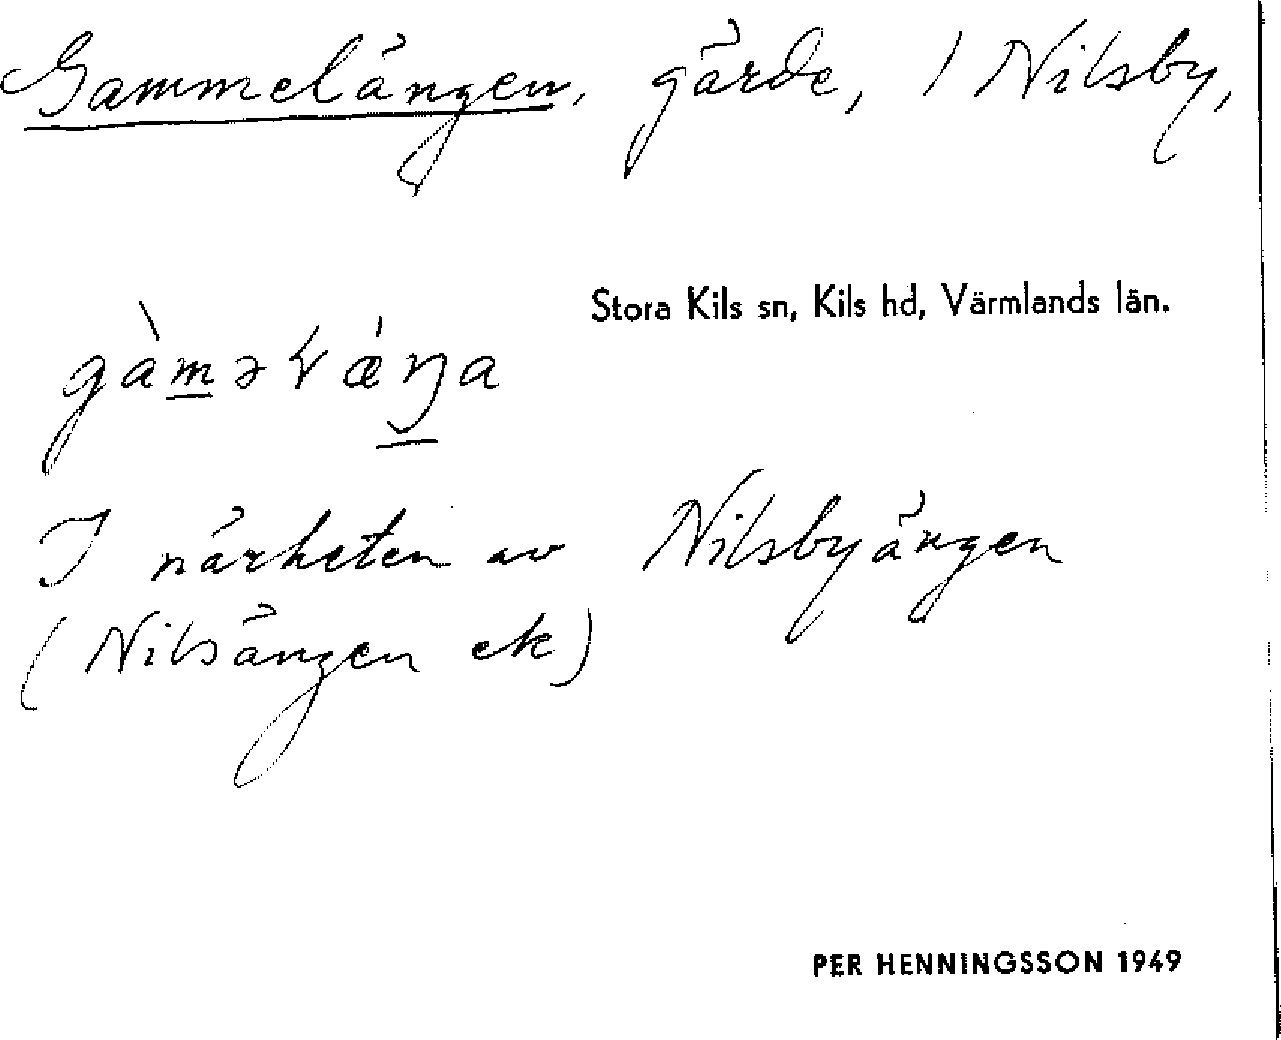 Gammelängen, gärde, i Nilsby,
Stora Kils sn, Kils hd, Värmlands län.
gàməɽǽŋa
I närheten av Nilsbyängen
(Nilsängen ek)
PER HENNINGSSON 1949